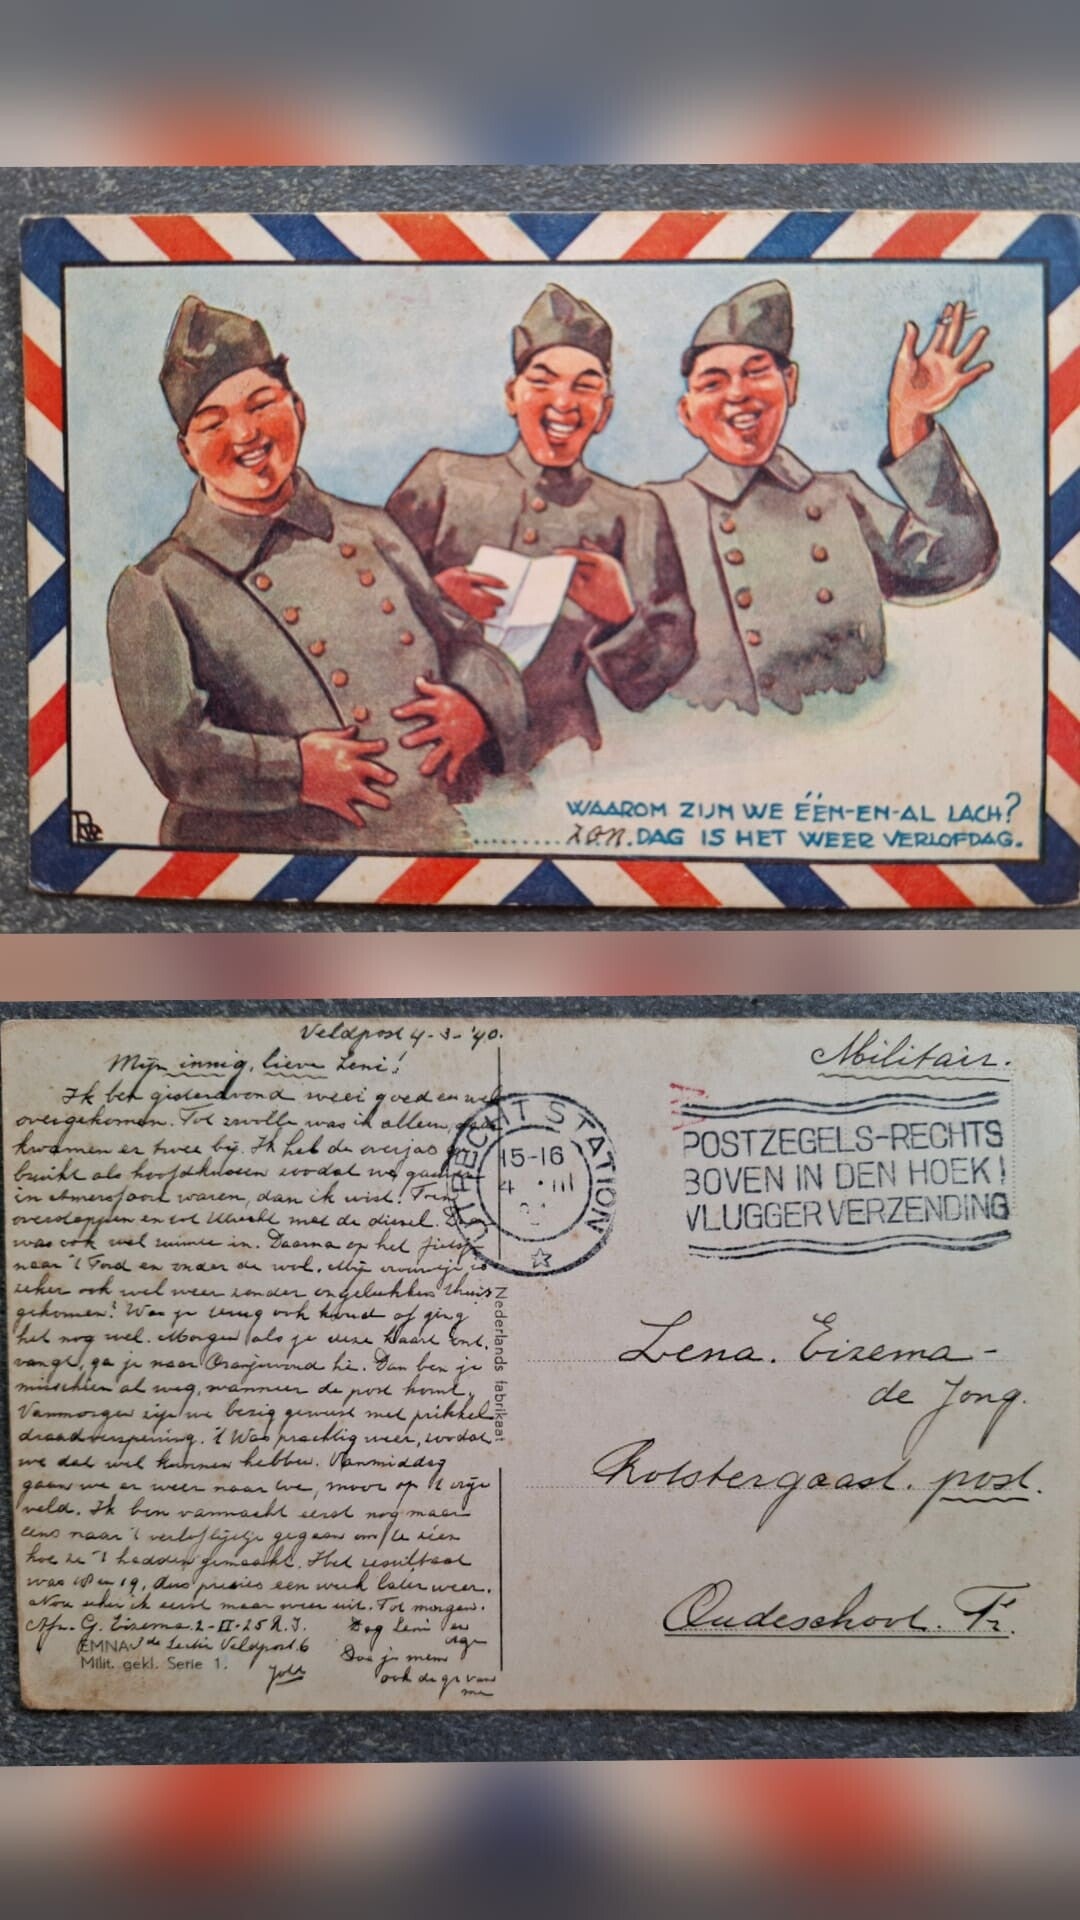 WAAROM ZIJN WE ÉÉN-EN-AL LACH?
........ZON.DAG IS HET WEER VERLOFDAG.
Veldpost 4-3-'40.
Mijn innig, lieve Leni!
Ik ben gisteravond weer goed en wel
overgekomen. Tot Zwolle was ik alleen, daar
kwamen er twee bij. Ik heb de overjas ge-
bruikt als hoofdkussen zoodat we gauw
in Amersfoort waren, dan ik wist. Toen
overstappen en tot Utrecht met de diesel. Daar
was ook wel ruimte in. Daarna op het fietsje
naar 't Ford en onder de wol. Mijn vrouwtje is
zeker ook wel weer zonder ongelukken thuis
gekomen? Was je terug ook koud of ging
het nog wel. Morgen als je deze kaart ont-
vangt, ga je naar Oranjewoud hè. Dan ben je
misschien al weg, wanneer de post komt.
Vanmorgen zijn we bezig geweest met prikkel
draadversperring. 't Was prachtig weer, zoodat
we dat wel kunnen hebben. Vanmiddag
gaan we er weer naar toe, maar op 't vrije
veld. Ik ben vannacht eerst nog maar
eens naar 't verloflijstje gegaan om te zien
hoe ze 't hadden gemaakt. Het resultaat
was 18 en 19, dus precies een week later weer.
Nou scher ik eerst maar weer uit. Tot morgen.
Afz. G. Eizema 2-II-25 R.I.
3de Sectie Veldpost 6
Dag Leni
EMNA
Milit. gekl. Serie 1.
Nederlands fabrikaat
Militair.
UTRECHT STATION
15-16
4 · III
POSTZEGELS-RECHTS
BOVEN IN DEN HOEK!
VLUGGER VERZENDING
Lena. Eizema-
de Jong.
Rotstergaast. post.
Oudeschoot. Fr.